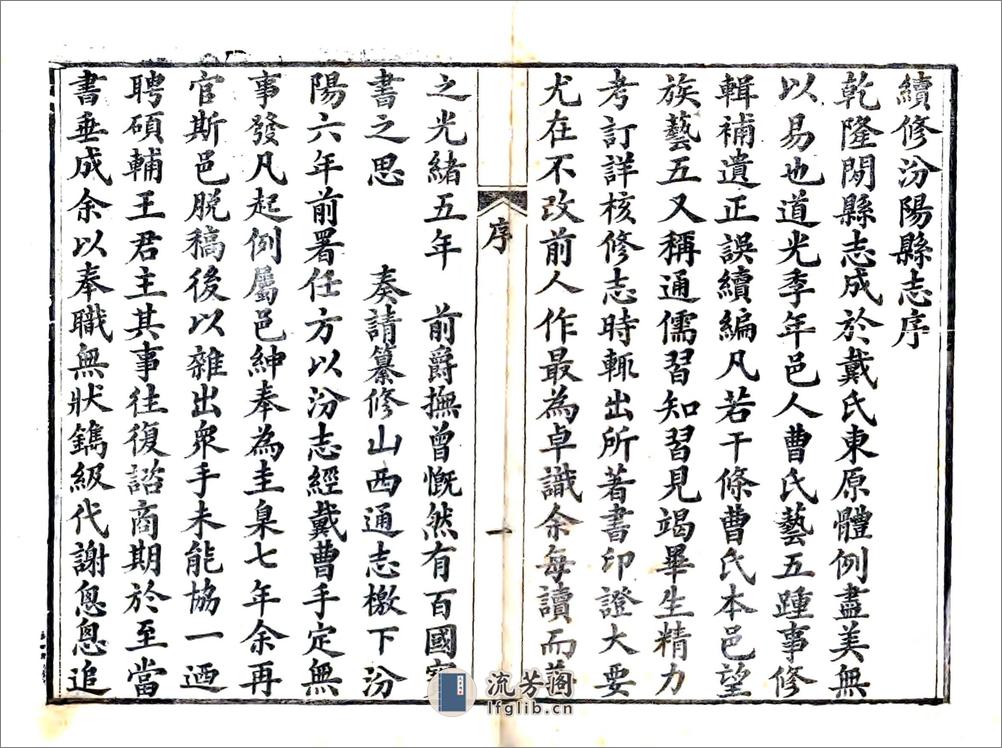 續修汾陽縣志序
乾隆閒縣志成於戴氏東原體例盡美無
以易也道光季年邑人曹氏藝五踵事修
輯補遺正誤續編凡若干條曹氏本邑望
族藝五又稱通儒習知習見竭畢生精力
考訂詳核修志時輒出所著書印證大要
尤在不改前人作最為卓識余每讀而
序
一
之光緒五年 前爵撫曾慨然有百國
書之思 奏請纂修山西通志檄下汾
陽六年前署任方以汾志經戴曹手定無
事發凡起例屬邑紳奉為圭臬七年余再
官斯邑脫稿後以雜出衆手未能協一迺
聘碩輔王君主其事往復諮商期於至當
書垂成余以奉職無狀鐫級代謝悤悤追
流芳阁
lfglib.cn